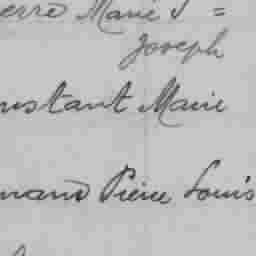 erre Marie J =
Joseph
nstant Marie
mand Pierre Louis